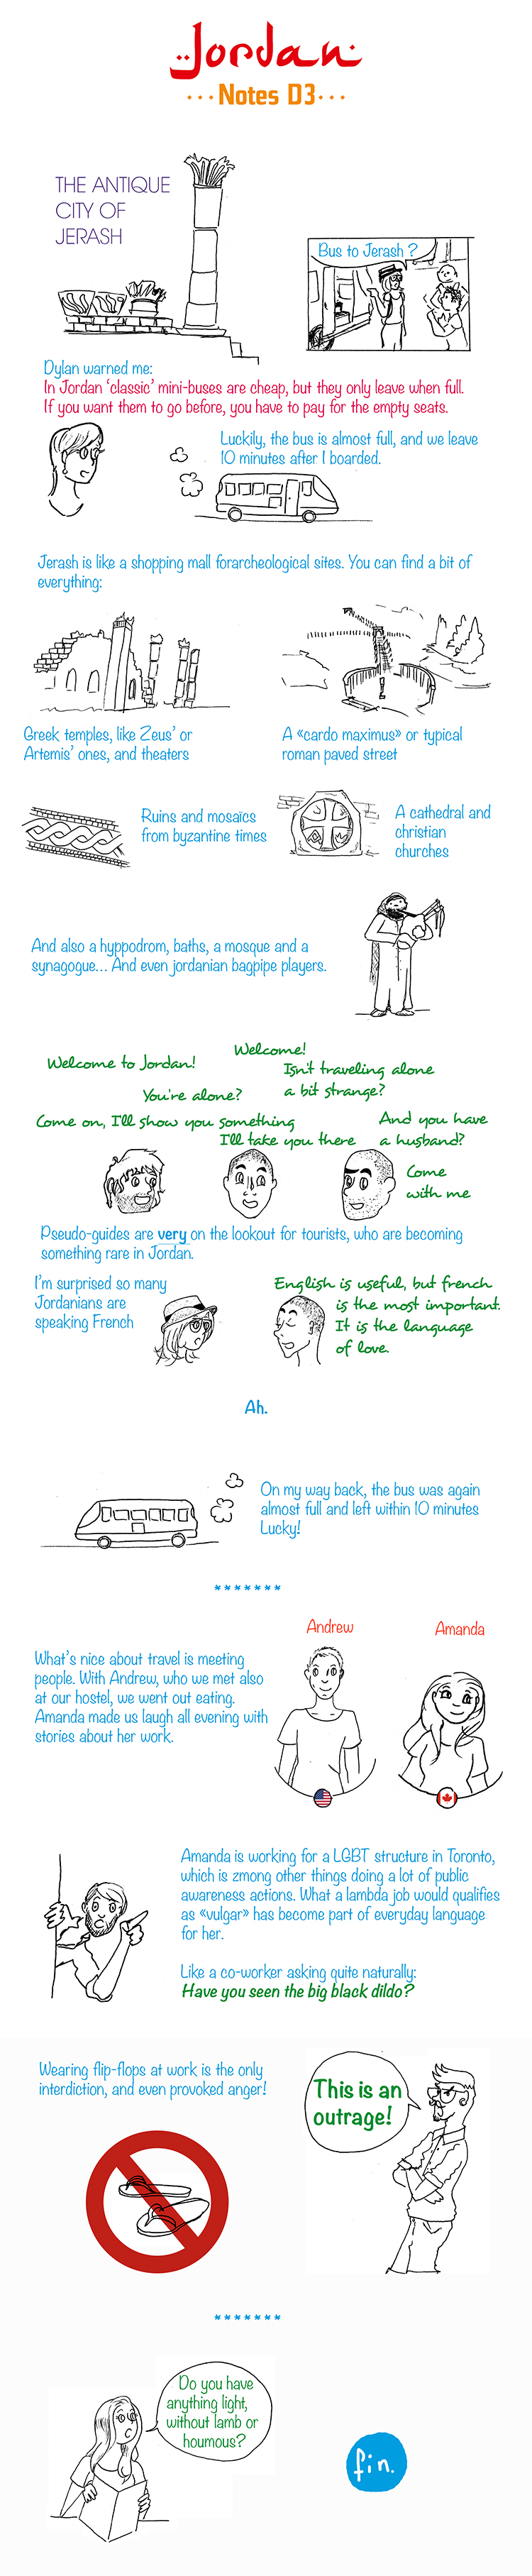 Jordan
Notes D3
THE ANTIQUE
CITY OF
JERASH
Bus to Jerash ?
Dylan warned me:
In Jordan 'classic' mini-buses are cheap, but they only leave when full.
If you want them to go before, you have to pay for the empty seats.
Luckily, the bus is almost full, and we leave
10 minutes after I boarded.
Jerash is like a shopping mall forarcheological sites. You can find a bit of
everything:
Greek temples, like Zeus' or
Artemis' ones, and theaters
A «cardo maximus» or typical
roman paved street
Ruins and mosaïcs
from byzantine times
A cathedral and
christian
churches
And also a hyppodrom, baths, a mosque and a
synagogue... And even jordanian bagpipe players.
Welcome to Jordan!
Welcome!
Isn't traveling alone
a bit strange?
You're alone?
Come on, I'll show you something
I'll take you there
And you have
a husband?
Come
with me
Pseudo-guides are very on the lookout for tourists, who are becoming
something rare in Jordan.
I'm surprised so many
Jordanians are
speaking French
English is useful, but french
is the most important.
It is the language
of love.
Ah.
On my way back, the bus was again
almost full and left within 10 minutes
Lucky!
*******
Andrew
Amanda
What's nice about travel is meeting
people. With Andrew, who we met also
at our hostel, we went out eating.
Amanda made us laugh all evening with
stories about her work.
Amanda is working for a LGBT structure in Toronto,
which is zmong other things doing a lot of public
awareness actions. What a lambda job would qualifies
as «vulgar» has become part of everyday language
for her.
Like a co-worker asking quite naturally:
Have you seen the big black dildo?
Wearing flip-flops at work is the only
interdiction, and even provoked anger!
This is an
outrage!
*******
Do you have
anything light,
without lamb or
houmous?
fin.